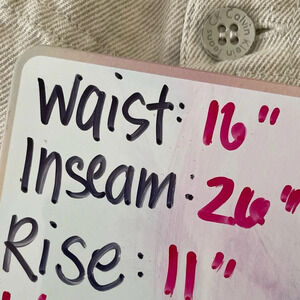 Calvin Klein
Waist: 16"
Inseam: 26"
Rise: 11"